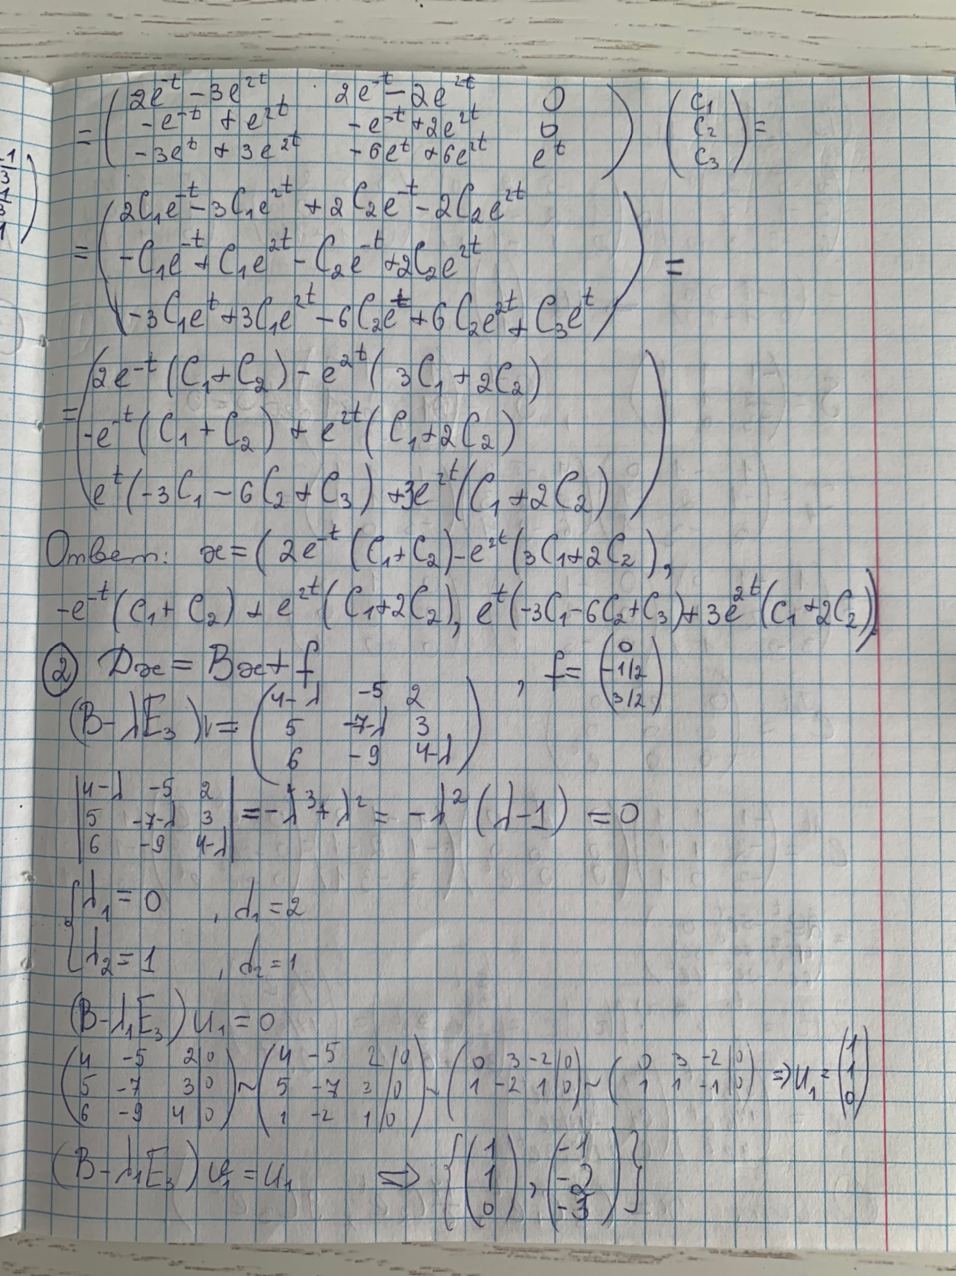 -1
3
1
= ( 2e^{-t} - 3e^{2t}   2e^{-t} - 2e^{2t}   0 ) ( C₁ ) =
-e^{-t} + e^{2t}   -e^{-t} + 2e^{2t}   0   C₂
-3e^{t} + 3e^{2t}   -6e^{t} + 6e^{2t}   e^{t}   C₃
( 2C₁e^{-t} - 3C₁e^{2t} + 2C₂e^{-t} - 2C₂e^{2t}
= -C₁e^{-t} + C₁e^{2t} - C₂e^{-t} + 2C₂e^{2t} ) =
-3C₁e^{t} + 3C₁e^{2t} - 6C₂e^{t} + 6C₂e^{2t} + C₃e^{t}
( 2e^{-t} (C₁+C₂) - e^{2t} ( 3C₁ + 2C₂)
= -e^{-t} (C₁ + C₂) + e^{2t} (C₁+2C₂)
e^{t} (-3C₁ - 6C₂ + C₃) + 3e^{2t} (C₁ + 2C₂) )
Ответ: x = ( 2e^{-t} (C₁+C₂) - e^{2t} (3C₁+2C₂),
-e^{-t} (C₁+C₂) + e^{2t} (C₁+2C₂), e^{t} (-3C₁-6C₂+C₃) + 3e^{2t} (C₁+2C₂))
② Dx = Bx + f , f = ( 0 -1/2 3/2 )
(B-λE₃)v = ( 4-λ   -5   2
5   -7-λ   3
6   -9   4-λ )
| 4-λ   -5   2 |
| 5   -7-λ   3 | = -λ³ + λ² = -λ² (λ-1) = 0
| 6   -9   4-λ |
{ λ₁ = 0 , d₁ = 2
λ₂ = 1 , d₂ = 1
(B-λ₁E₃) u₁ = 0
( 4 -5 2|0 ) ( 4 -5 2|0 ) ( 0 3 -2|0 ) ( 0 3 -2|0 ) ( 1 )
5 -7 3|0 ~ 5 -7 3|0 ~ 1 -2 1|0 ~ 1 1 -1|0 => u₁ = 1
6 -9 4|0   1 -2 1|0   0
(B-λ₁E₃) v₁ = u₁ => { ( 1 1 0 ) , ( -1 -2 -3 ) }